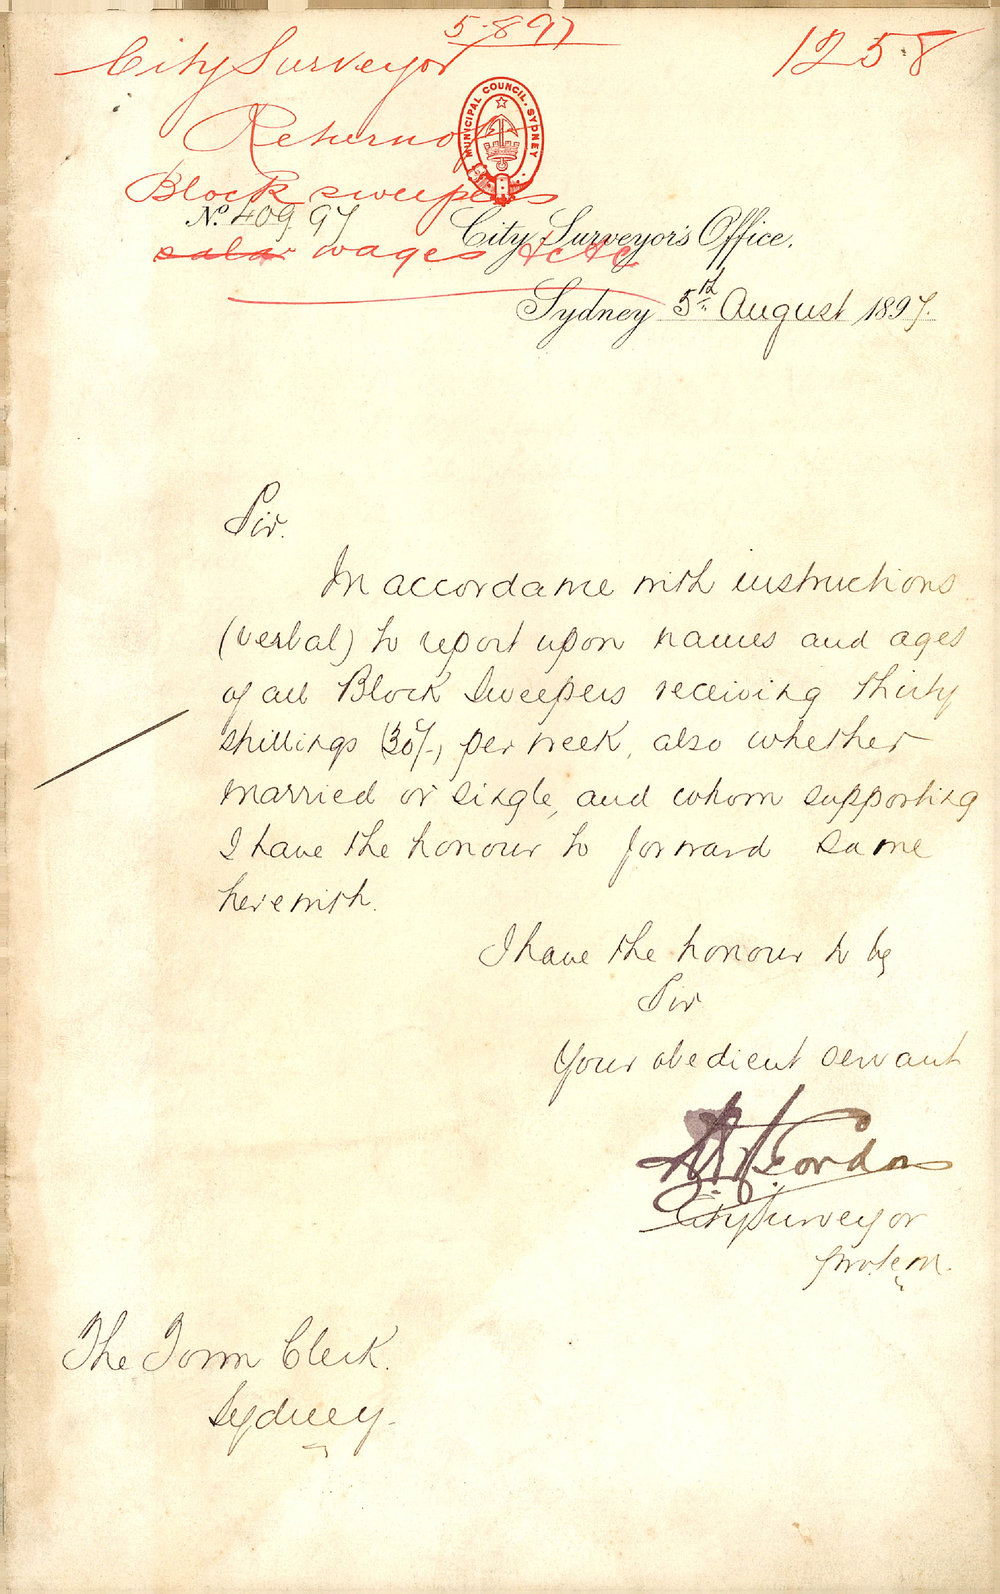 5.8.97
City Surveyor
1258
MUNICIPAL COUNCIL. SYDNEY
Return of
Block sweepers
No. 409 97
City Surveyor's Office.
salar wages &c &c
Sydney 5th August 1897.
Sir.
In accordance with instructions
(verbal) to report upon names and ages
of all Block Sweepers receiving thirty
shillings (30/-) per week, also whether
married or single, and whom supporting
I have the honour to forward same
herewith.
I have the honour to be
Sir
Your obedient servant
Gordon
City Surveyor
pro tem.
The Town Clerk.
Sydney.